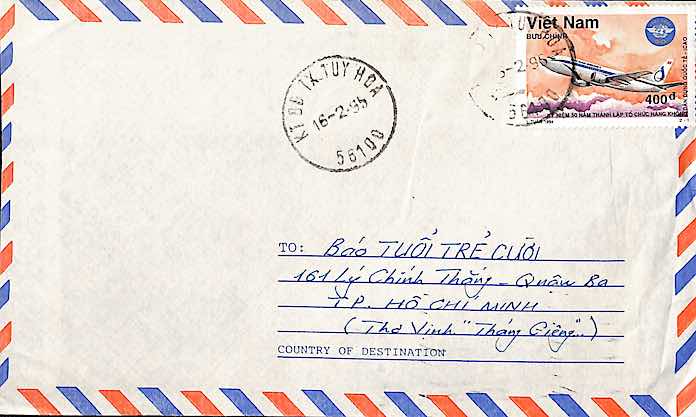 Việt Nam
BƯU CHÍNH
400đ
KỶ NIỆM 50 NĂM THÀNH LẬP TỔ CHỨC HÀNG KHÔNG
KT BĐ TX. TUY HOA
16-2-95
56100
TUY HOA
-2-95
56100
TO: Báo TUỔI TRẺ CƯỜI
161 Lý Chính Thắng - Quận Ba
TP. HỒ CHÍ MINH
(Thơ Vinh "Tháng Giêng"..)
COUNTRY OF DESTINATION